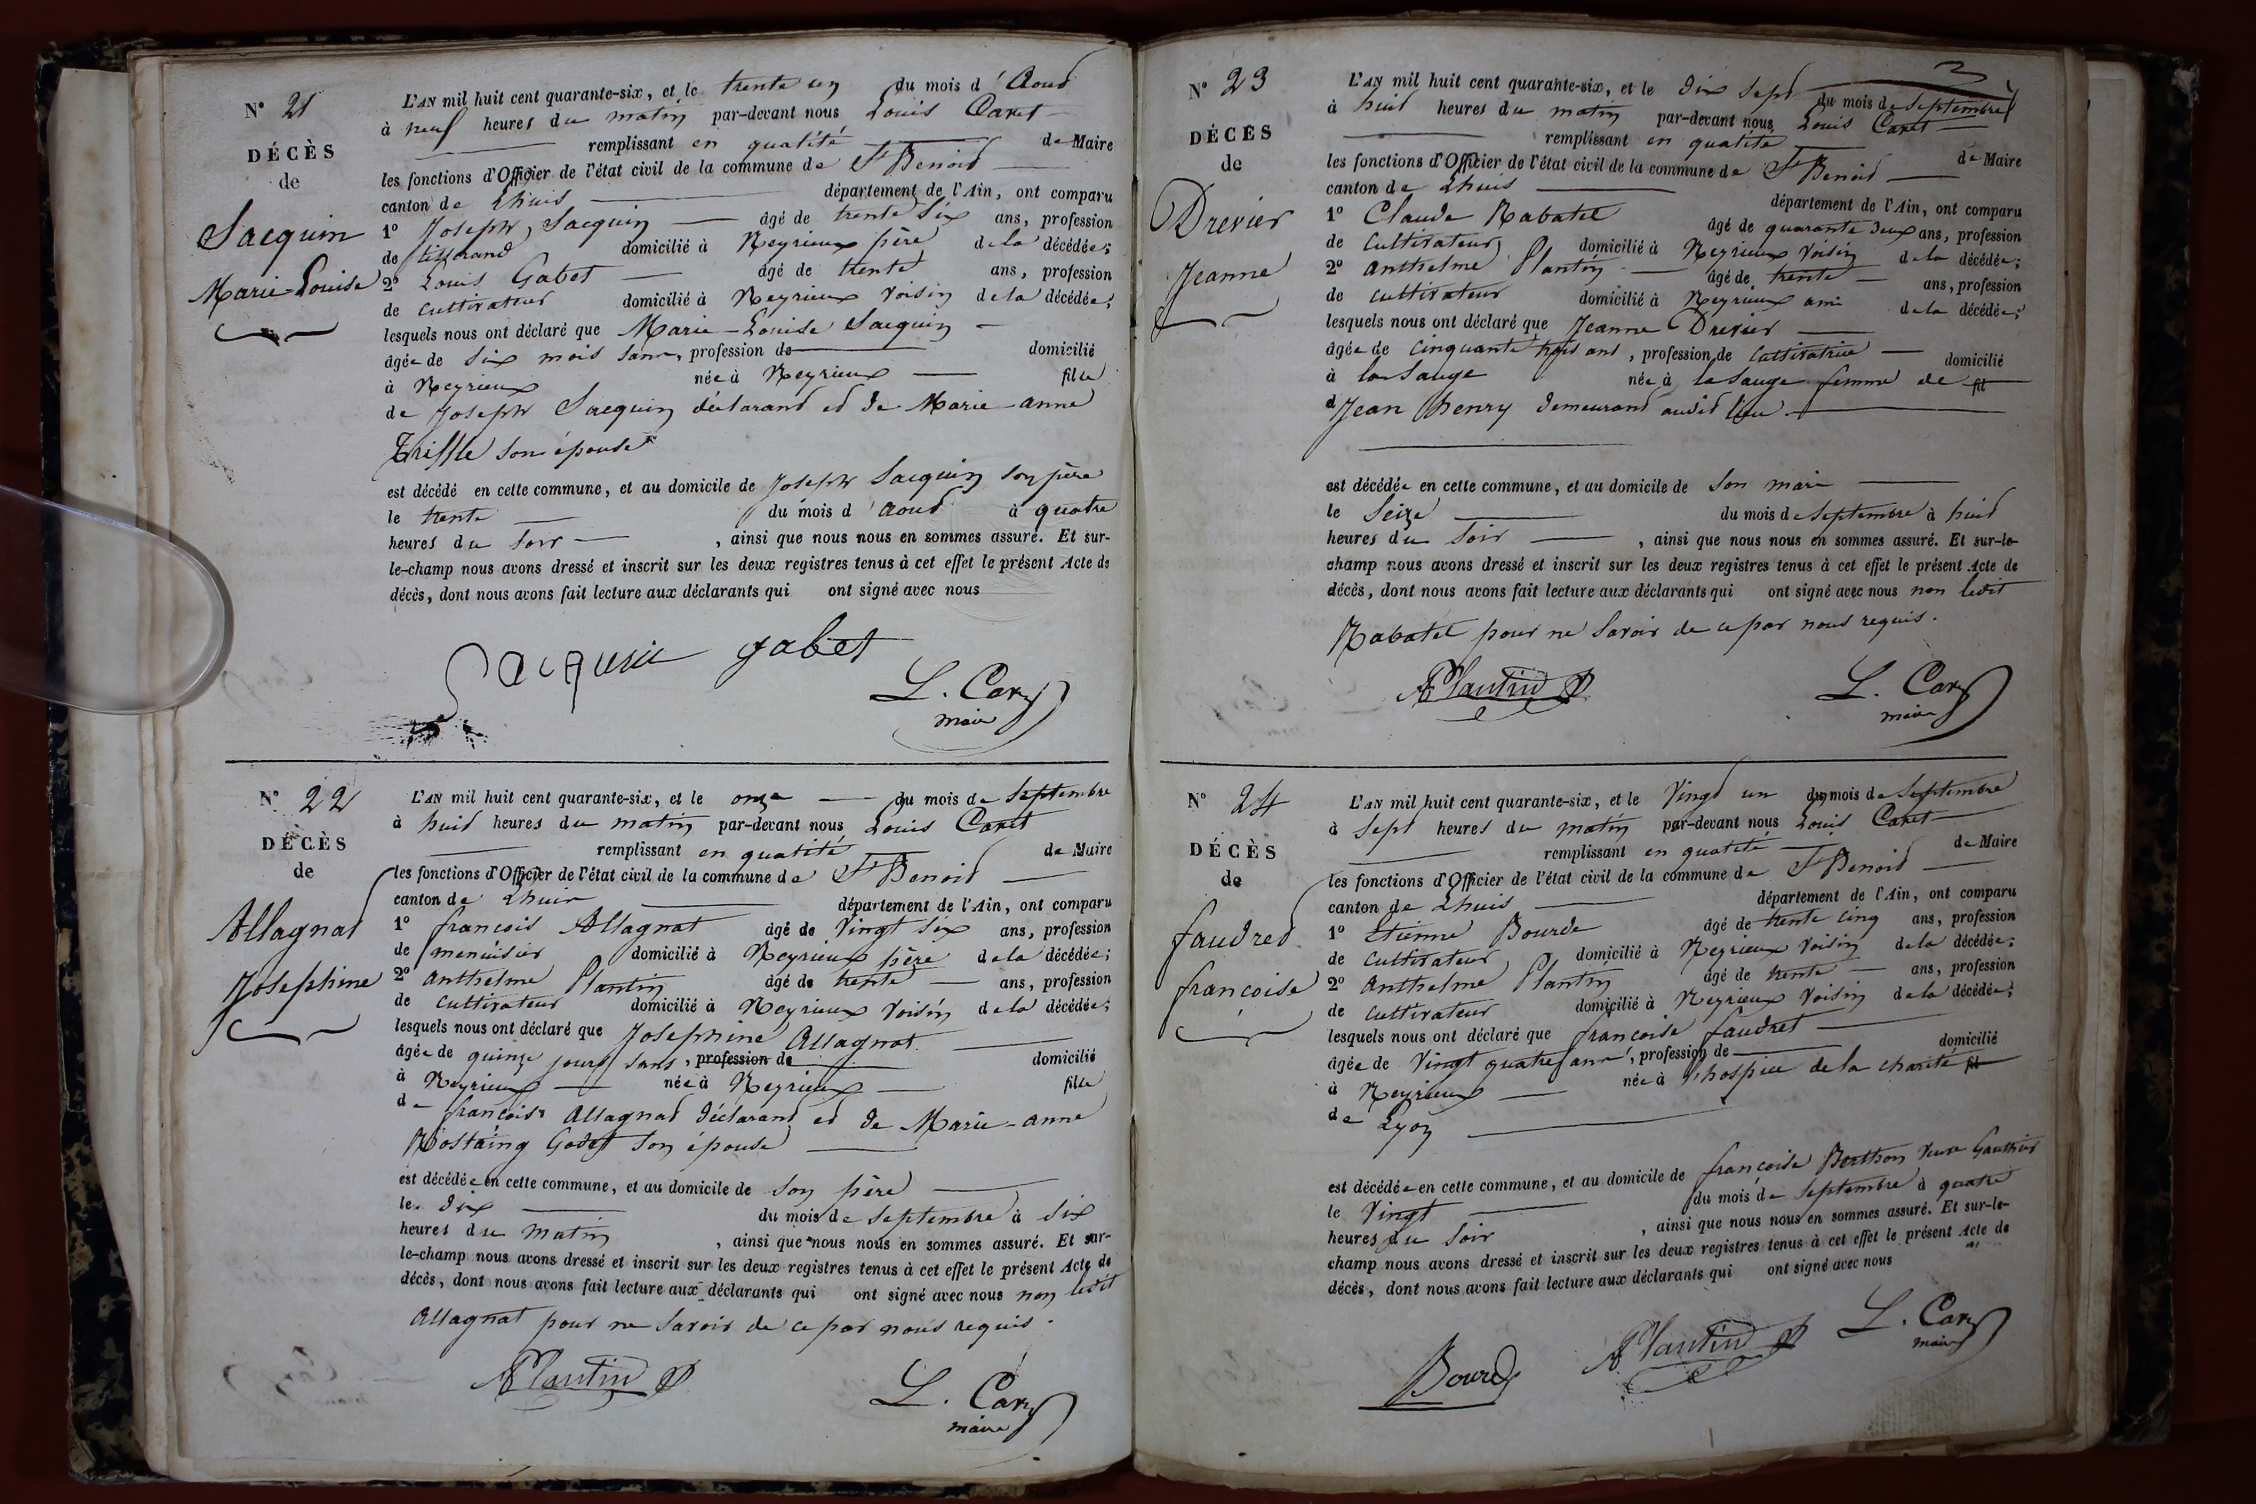 N° 21
DÉCÈS
de
Sacquin
Marie-Louise
L'AN mil huit cent quarante-six, et le trente un du mois d'Aout
à neuf heures du matin par-devant nous Louis Caret
remplissant en qualité de Maire
les fonctions d'Officier de l'état civil de la commune de St Benoit
canton de Lhuis département de l'Ain, ont comparu
1° Joseph Sacquin âgé de trente six ans, profession
de tisserand domicilié à Neyrieux père de la décédée;
2° Louis Gabet âgé de trente ans, profession
de cultivateur domicilié à Neyrieux voisin de la décédée;
lesquels nous ont déclaré que Marie-Louise Sacquin
âgée de six mois sans, profession de domicilié
à Neyrieux née à Neyrieux fille
de Joseph Sacquin déclarant et de Marie-anne
Triffle son épouse
est décédé en cette commune, et au domicile de Joseph Sacquin son père
le trente du mois d'aout à quatre
heures du soir, ainsi que nous nous en sommes assuré. Et sur-
le-champ nous avons dressé et inscrit sur les deux registres tenus à cet effet le présent Acte de
décès, dont nous avons fait lecture aux déclarants qui ont signé avec nous
Sacquin gabet
L. Caret
maire
N° 22
DÉCÈS
de
Allagnat
Josephine
L'AN mil huit cent quarante-six, et le onze du mois de Septembre
à huit heures du matin par-devant nous Louis Caret
remplissant en qualité de Maire
les fonctions d'Officier de l'état civil de la commune de St Benoit
canton de Lhuis département de l'Ain, ont comparu
1° françois Allagnat âgé de vingt six ans, profession
de menuisier domicilié à Neyrieux père de la décédée;
2° anthelme Plantin âgé de trente ans, profession
de cultivateur domicilié à Neyrieux voisin de la décédée;
lesquels nous ont déclaré que Josephine Allagnat
âgée de quinze jours sans, profession de domicilié
à Neyrieux née à Neyrieux fille
de françois Allagnat déclarant et de Marie-anne
Rostaing Godet son épouse
est décédée en cette commune, et au domicile de son père
le dix du mois de Septembre à six
heures du matin, ainsi que nous nous en sommes assuré. Et sur-
le-champ nous avons dressé et inscrit sur les deux registres tenus à cet effet le présent Acte de
décès, dont nous avons fait lecture aux déclarants qui ont signé avec nous non ledit
Allagnat pour ne savoir de ce par nous requis.
A Plantin
L. Caret
maire
N° 23
DÉCÈS
de
Drevier
Jeanne
L'AN mil huit cent quarante-six, et le dix sept du mois de Septembre
à huit heures du matin par-devant nous Louis Caret
remplissant en qualité de Maire
les fonctions d'Officier de l'état civil de la commune de St Benoit
canton de Lhuis département de l'Ain, ont comparu
1° Claude Rabatel âgé de quarante deux ans, profession
de cultivateur domicilié à Neyrieux voisin de la décédée;
2° anthelme Plantin âgé de trente ans, profession
de cultivateur domicilié à Neyrieux ami de la décédée;
lesquels nous ont déclaré que Jeanne Drevier
âgée de cinquante trois ans, profession de cultivatrice domicilié
à la Sauge née à la Sauge femme de fil
d Jean Henry demeurant audit lieu
est décédée en cette commune, et au domicile de son mari
le Seize du mois de Septembre à huit
heures du soir, ainsi que nous nous en sommes assuré. Et sur-le-
champ nous avons dressé et inscrit sur les deux registres tenus à cet effet le présent Acte de
décès, dont nous avons fait lecture aux déclarants qui ont signé avec nous non ledit
Rabatel pour ne savoir de ce par nous requis.
A Plantin
L. Caret
maire
N° 24
DÉCÈS
de
faudret
françoise
L'AN mil huit cent quarante-six, et le vingt un du mois de Septembre
à sept heures du matin par-devant nous Louis Caret
remplissant en qualité de Maire
les fonctions d'Officier de l'état civil de la commune de St Benoit
canton de Lhuis département de l'Ain, ont comparu
1° Etienne Bourde âgé de trente cinq ans, profession
de cultivateur domicilié à Neyrieux voisin de la décédée;
2° Anthelme Plantin âgé de trente ans, profession
de cultivateur domicilié à Neyrieux voisin de la décédée;
lesquels nous ont déclaré que françoise faudret
âgée de vingt quatre ans, profession de domicilié
à Neyrieux née à l'hospice de la charité fil
de Lyon
est décédée en cette commune, et au domicile de françoise Berthon veuve Gauthier
le vingt du mois de Septembre à quatre
heures du soir, ainsi que nous nous en sommes assuré. Et sur-le-
champ nous avons dressé et inscrit sur les deux registres tenus à cet effet le présent Acte de
décès, dont nous avons fait lecture aux déclarants qui ont signé avec nous
Bourde A Plantin L. Caret
maire